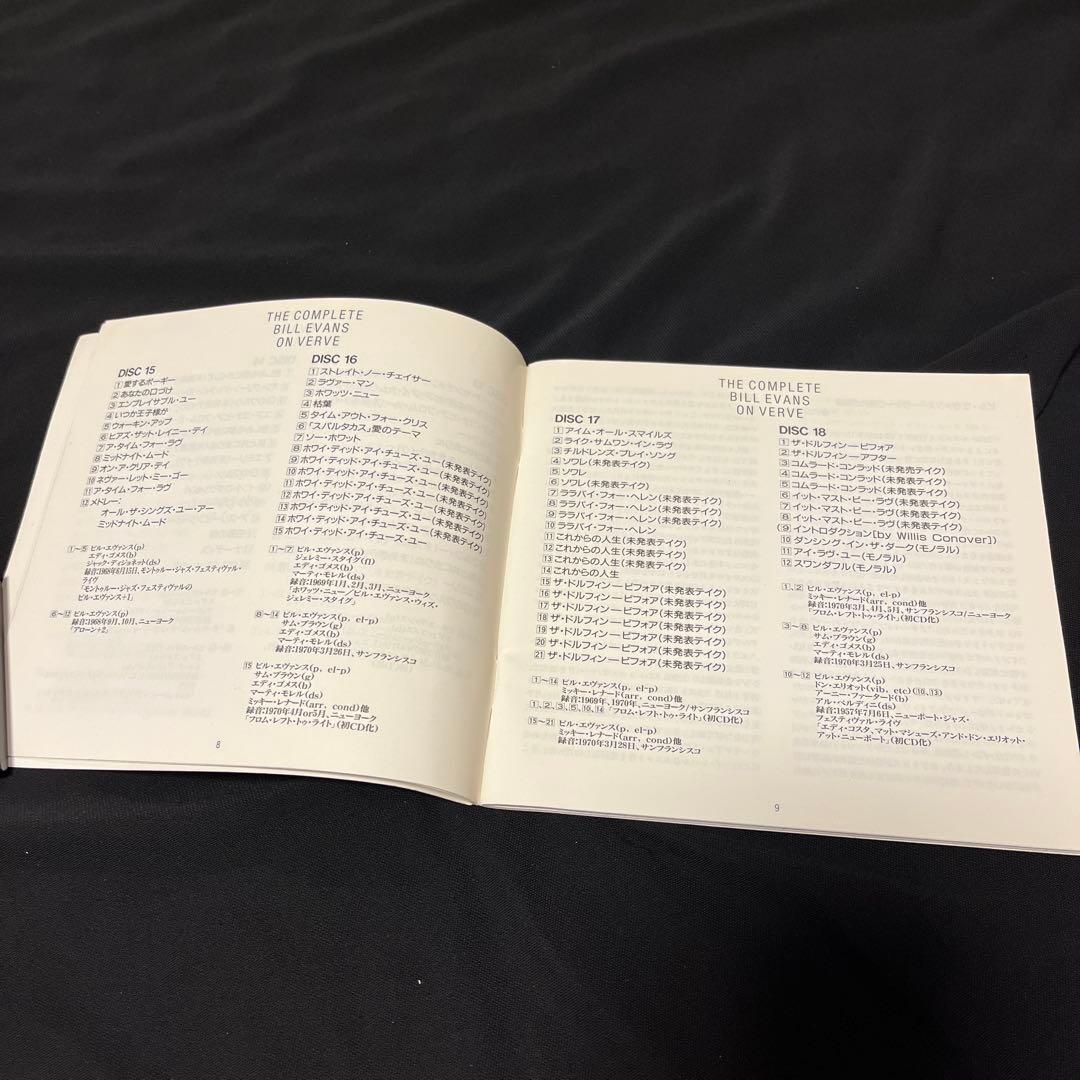 THE COMPLETE
BILL EVANS
ON VERVE
DISC 15
1 愛するポーギー
2 あなたの口づけ
3 エンブレイサブル・ユー
4 いつか王子様が
5 ウォーキン・アップ
6 ヒアズ・ザット・レイニー・デイ
7 ア・タイム・フォー・ラヴ
8 ミッドナイト・ムード
9 オン・ア・クリア・デイ
10 ネヴァー・レット・ミー・ゴー
11 ア・タイム・フォー・ラヴ
12 メドレー:
オール・ザ・シングズ・ユー・アー
ミッドナイト・ムード
1〜5 ビル・エヴァンス(p)
エディ・ゴメス(b)
ジャック・ディジョネット(ds)
録音:1968年6月15日、モントゥルー・ジャズ・フェスティヴァル・
ライヴ
「モントゥルー・ジャズ・フェスティヴァルの
ビル・エヴァンス+1」
6〜12 ビル・エヴァンス(p)
録音:1968年9月、10月、ニューヨーク
「アローン+2」
DISC 16
1 ストレイト・ノー・チェイサー
2 ラヴァー・マン
3 ホワッツ・ニュー
4 枯葉
5 タイム・アウト・フォー・クリス
6 「スパルタカス」愛のテーマ
7 ソー・ホワット
8 ホワイ・ディッド・アイ・チューズ・ユー(未発表テイク)
9 ホワイ・ディッド・アイ・チューズ・ユー(未発表テイク)
10 ホワイ・ディッド・アイ・チューズ・ユー(未発表テイク)
11 ホワイ・ディッド・アイ・チューズ・ユー(未発表テイク)
12 ホワイ・ディッド・アイ・チューズ・ユー(未発表テイク)
13 ホワイ・ディッド・アイ・チューズ・ユー(未発表テイク)
14 ホワイ・ディッド・アイ・チューズ・ユー(未発表テイク)
15 ホワイ・ディッド・アイ・チューズ・ユー
1〜7 ビル・エヴァンス(p)
ジェレミー・スタイグ(fl)
エディ・ゴメス(b)
マーティ・モレル(ds)
録音:1969年1月、2月、3月、ニューヨーク
「ホワッツ・ニュー/ビル・エヴァンス・ウィズ・
ジェレミー・スタイグ」
8〜14 ビル・エヴァンス(p, el-p)
サム・ブラウン(g)
エディ・ゴメス(b)
マーティ・モレル(ds)
録音:1970年3月26日、サンフランシスコ
15 ビル・エヴァンス(p, el-p)
サム・ブラウン(g)
エディ・ゴメス(b)
マーティ・モレル(ds)
ミッキー・レナード(arr, cond)他
録音:1970年4月or5月、ニューヨーク
「フロム・レフト・トゥ・ライト」(初CD化)
8
THE COMPLETE
BILL EVANS
ON VERVE
DISC 17
1 アイム・オール・スマイルズ
2 ライク・サムワン・イン・ラヴ
3 チルドレンズ・プレイ・ソング
4 ソワレ(未発表テイク)
5 ソワレ
6 ソワレ(未発表テイク)
7 ララバイ・フォー・ヘレン(未発表テイク)
8 ララバイ・フォー・ヘレン(未発表テイク)
9 ララバイ・フォー・ヘレン(未発表テイク)
10 ララバイ・フォー・ヘレン
11 これからの人生(未発表テイク)
12 これからの人生(未発表テイク)
13 これからの人生(未発表テイク)
14 これからの人生
15 ザ・ドルフィン―ビフォア(未発表テイク)
16 ザ・ドルフィン―ビフォア(未発表テイク)
17 ザ・ドルフィン―ビフォア(未発表テイク)
18 ザ・ドルフィン―ビフォア(未発表テイク)
19 ザ・ドルフィン―ビフォア(未発表テイク)
20 ザ・ドルフィン―ビフォア(未発表テイク)
21 ザ・ドルフィン―ビフォア(未発表テイク)
1〜14 ビル・エヴァンス(p, el-p)
ミッキー・レナード(arr, cond)他
録音:1969年、1970年、ニューヨーク/サンフランシスコ
1、2、3、5、10、14 「フロム・レフト・トゥ・ライト」(初CD化)
15〜21 ビル・エヴァンス(p, el-p)
ミッキー・レナード(arr, cond)他
録音:1970年3月28日、サンフランシスコ
DISC 18
1 ザ・ドルフィン―ビフォア
2 ザ・ドルフィン―アフター
3 コムラード・コンラッド(未発売テイク)
4 コムラード・コンラッド(未発表テイク)
5 コムラード・コンラッド(未発表テイク)
6 イット・マスト・ビー・ラヴ(未発表テイク)
7 イット・マスト・ビー・ラヴ(未発表テイク)
8 イット・マスト・ビー・ラヴ(未発表テイク)
9 イントロダクション[by Willis Conover])
10 ダンシング・イン・ザ・ダーク(モノラル)
11 アイ・ラヴ・ユー(モノラル)
12 スワンダフル(モノラル)
1、2 ビル・エヴァンス(p, el-p)
ミッキー・レナード(arr, cond)他
録音:1970年3月、4月、5月、サンフランシスコ/ニューヨーク
「フロム・レフト・トゥ・ライト」(初CD化)
3〜8 ビル・エヴァンス(p)
サム・ブラウン(g)
エディ・ゴメス(b)
マーティ・モレル(ds)
録音:1970年3月25日、サンフランシスコ
10〜12 ビル・エヴァンス(p)
ドン・エリオット(vib, etc)(10、13)
アーニー・ファータード(b)
アル・ベルディニ(ds)
録音:1957年7月6日、ニューポート・ジャズ・
フェスティヴァル・ライヴ
「エディ・コスタ、マット・マシューズ・アンド・ドン・エリオット・
アット・ニューポート」(初CD化)
9